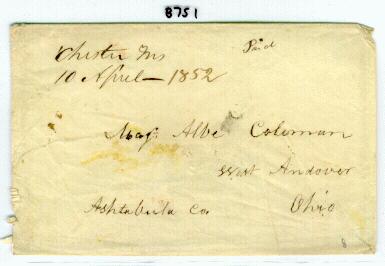 8751
Paid
Chester Ms
10 April - 1852
Maj. Albe Coleman
West Andover
Ashtabula Co. Ohio
8